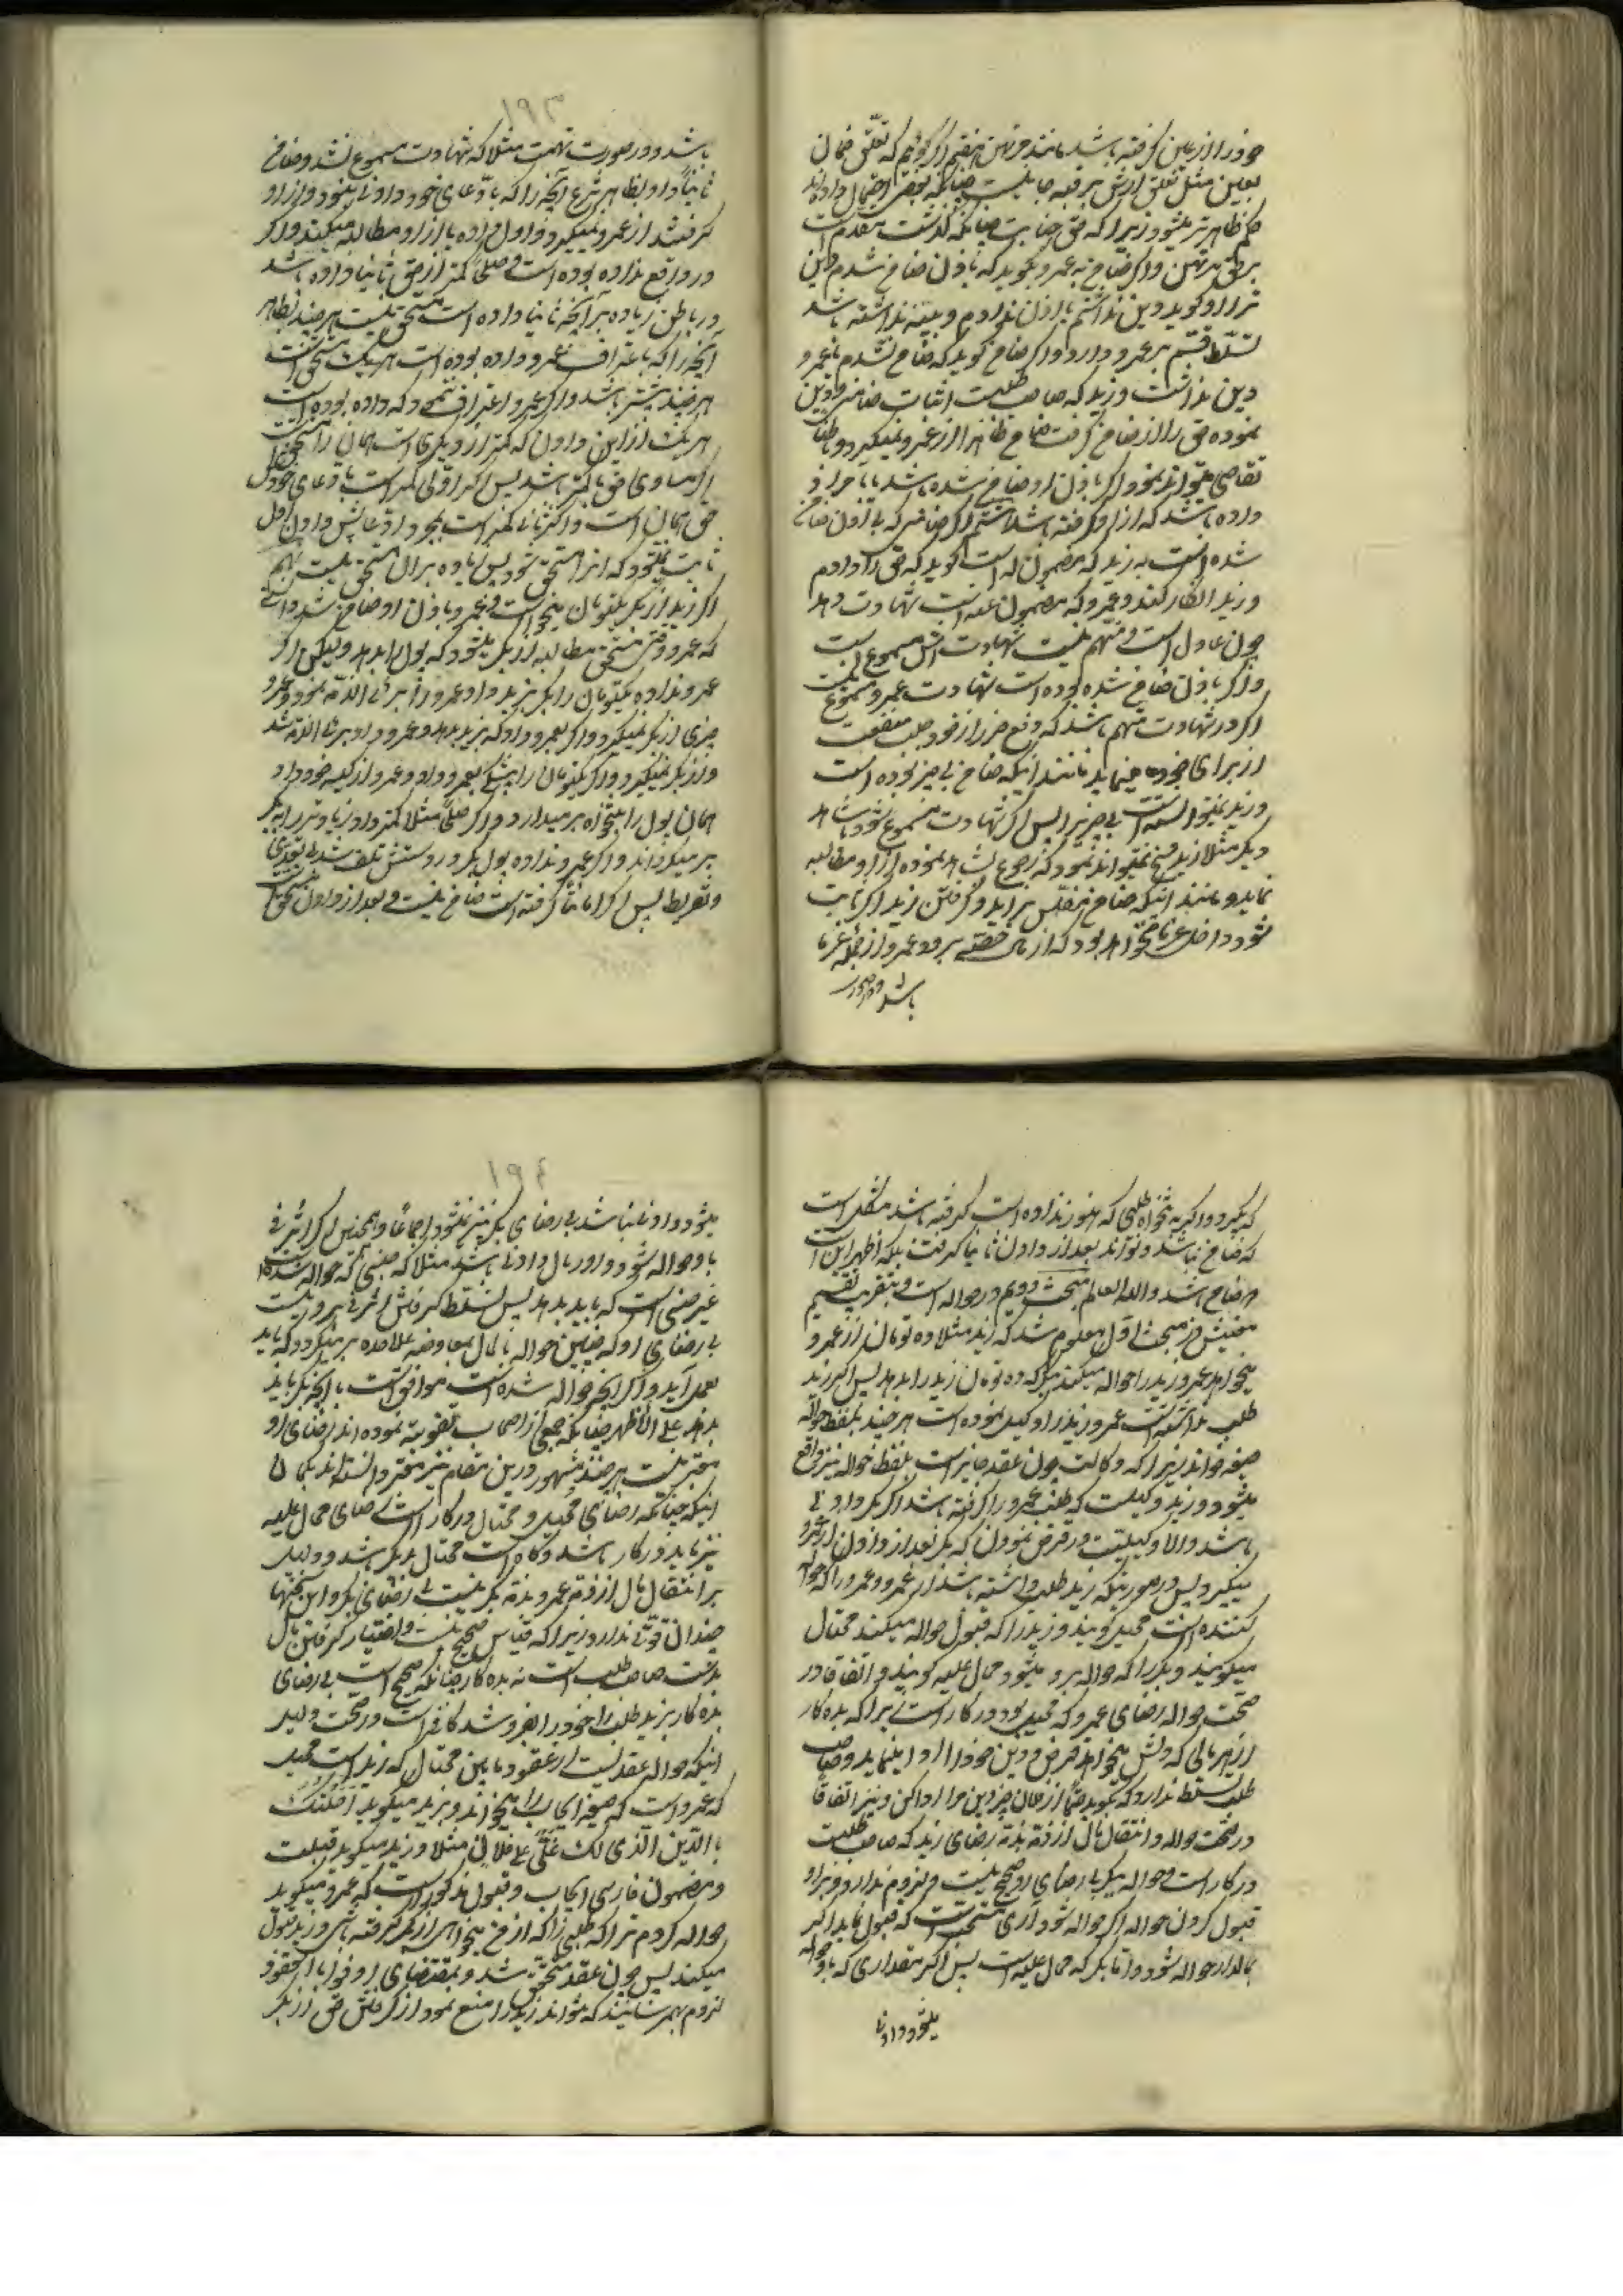 خود را از عین گرفته باشد مانند مرتهن پس اگر گوئیم که تعلق ضمان
بعین مثل تعلق ارش برقبه جانیست چنانکه بعضی احتمال داده‌اند
حکم ظاهرتر میشود زیرا که حق جنایت چنانکه گذشت مقدم است
بر حق مرتهن و اگر ضامن به عمرو بگوید که باذن ضامن شدم دین
ترا او گوید دین نداشتم یا اذن ندادم و بینه نداشته باشد
تسلط قسم بر عمرو دارد و اگر ضامن گوید که ضامن نشدم یا عمرو
دین نداشت و زید که صاحب طلبست اثبات ضامنی و دین
نموده حق را از ضامن گرفت ضامن ظاهرا از عمرو نمیگیرد و باطنا
تقاص میتواند نمود اگر باذن او ضامن شده باشد یا
داده باشد که از او گرفته باشد اگر ضامنی که باذن ضامن
شده است به زید که مضمون له است گوید که حق را دادم
و زید انکار کند و عمرو که مضمون عنه است شهادت دهد
چون عادل است و متهم نیست شهادت مسموع است
و اگر باذن ضامن شده بوده است شهادت عمرو مسموع
اگر در شهادت متهم باشد که دفع ضرر از خود جلب منفعت
از برای خود مینماید مانند اینکه ضامن بی چیز بوده است
و زید نمیدانسته است بی چیزی را پس اگر شهادت مسموع شود شاهد
دیگر مثلا زید فسخ نمیتواند نمود که رجوع نموده از او مطالبه
نماید و مانند اینکه ضامن مفلس برآید و گرفتن زید اگر ثابت
شود داخل غرما خواهد بود که از مال حصه برد و عمرو از جمله غرما
باشد و در صورت
۱۹۳
باشد و در صورت تهمت مثلا که شهادت مسموع نشد و ضامن
ثانیا داد بظاهر شرع آنچه را که بادعای خود داد ثانیا خود و از او
گرفتند از عمرو نمیگیرد و اول داده را از او مطالبه میکند و اگر
در واقع نداده بوده است و کمتر از حق ثانیا داده باشد
در باطن زیاده بر آنچه ثانیا داده است مستحق نیست هر چند بظاهر
آنچه را که باعتراف عمرو داده بوده است مستحق است
هر چند بیشتر باشد و اگر عمرو اعتراف نمود که داده بوده است
هر یک از این دادن که کمتر از دیگری است همان را مستحق است
اگر مساوی حق یا کمتر باشد پس اگر اولی کمتر است بادعای خودش
حق همان است و اگر ثانی کمتر است بمجرد ادعایش دادن اول
ثابت نمیشود که از آن مستحق شود پس زیاده بر آن مستحق نیست
اگر زید از بکر یکتومان میخواست و عمرو باذن او ضامن شد دانستی
که عمرو وقتی مستحق مطالبه از بکر میشود که پول را بدهد و لیکن اگر
عمرو نداده یکتومان را بکر بزید داد و عمرو را بری الذمه نمود عمرو
چیزی از بکر نمیگیرد و اگر بعمرو داد که بزید بدهد و عمرو داد بری الذمه شد
و از بکر نمیگیرد و اگر یکتومان را بعمرو داد و عمرو از کیسه خود داد
همان پول را بتنخواه برمیدارد و اگر مثلا کمتر داد زیادتر را به بکر
برمیگرداند و اگر عمرو نداده پول بکر در دستش تلف شد بی تعدی
و تفریط پس اگر امانتا گرفته است ضامن نیست و بعد از دادن مستحق است
که بگیرد و اگر به تنخواه طلبی که هنوز نداده است گرفته باشد مشکل است
که ضامن نباشد و تواند بعد از دادن ثانیا گرفت بلکه اظهر این است
که ضامن باشد والله العالم مبحث دویم در حواله است و بتقریب تقسیم
پیش در مبحث اول معلوم شد که زید مثلا ده تومان از عمرو
میخواهد عمرو زید را حواله میکند به بکر که ده تومان زید را بدهد پس اگر زید
طلب نداشته است عمرو زید را وکیل نموده است هر چند بلفظ حواله
صیغه خواند زیرا که وکالت چون عقد جایز است بلفظ حواله نیز واقع
میشود و زید وکیلست که طلب عمرو را گرفته باشد اگر بکر دادنی
باشد والا وکیلست در قرض نمودن که بکر بعد از دادن از عمرو
میگیرد پس در صورتیکه زید طلب داشته باشد از عمرو و عمرو را که حواله
کننده است محیل گویند و زید را که قبول حواله میکند محتال
میگویند و بکر را که حواله بر او میشود محال علیه گویند و اتفاقا در
صحت حواله رضای عمرو که محیل بود در کار است زیرا که بده کار
از هر مالی که دلش میخواهد قرض و دین خود را ادا مینماید و صاحب
طلب تسلط ندارد که بگوید حتما از فلان چیز دین مرا ادا کن و نیز اتفاقا
در صحت حواله و انتقال مال از ذمه بذمه رضای زید که صاحب طلبست
در کار است و حواله به بکر بی رضای او صحیح نیست و لزوم ندارد بر او
قبول کردن حواله اگر حواله شود آری مستحب است که قبول نماید اگر
بمالدار حواله شود و اما بکر که محال علیه است پس اگر مقداری که باو حواله
میشود دادنی
۱۹۴
میشود دادنی نباشد بی رضای بکر نیز نمیشود اجماعا و همچنین اگر اثر فی
باو حواله شود و او ریال دادنی باشد مثلا که جنسی که حواله شده است
غیر جنسی است که باید بدهد پس تسلط گرفتن اثر فی بر او نیست
بی رضای او که چنین حواله بامال بمعاوضه علاحده برمیگردد که باید
بعمل آید و اگر آنچه حواله شده است موافق است با آنچه بکر باید
بدهد علی الاظهر چنانکه جمعی از اصحاب تقویت نموده‌اند رضای او
معتبر نیست هر چند مشهور در این مقام نیز معتبر دانسته‌اند بگمان
اینکه چنانکه رضای محیل و محتال در کار است رضای محال علیه
نیز باید در کار باشد و گاه است محتال بد بکر باشد و دلیل
بر انتقال مال از ذمه عمرو بذمه بکر نیست بی رضای بکر و این سخنها
چندان قوتی ندارد زیرا که قیاس صحیح نیست و اختیار گرفتن مال
بدست صاحب طلب است نه بده کار چنانکه صحیح است بی رضای
بده کار بزید طلب را خود را بفروشد کافی است در صحت دلیل
اینکه حواله عقدیست از عقود مابین محتال که زید است و محیل
که عمرو است که صیغه ایجاب را میخواند و بزید میگوید احلتک
بالدین الذی لک علی علی فلان مثلا و زید میگوید قبلت
و مضمون فارسی ایجاب و قبول مذکور است که عمرو میگوید
حواله کردم ترا که طلبی را که از من میخواهی از بکر گرفته باشی و زید قبول
میکند پس چون عقد متحقق شد و بمقتضای اوفوا بالعقود
لزوم بهم رسانید که نتواند زید را منع نمود از گرفتن حق از بکر